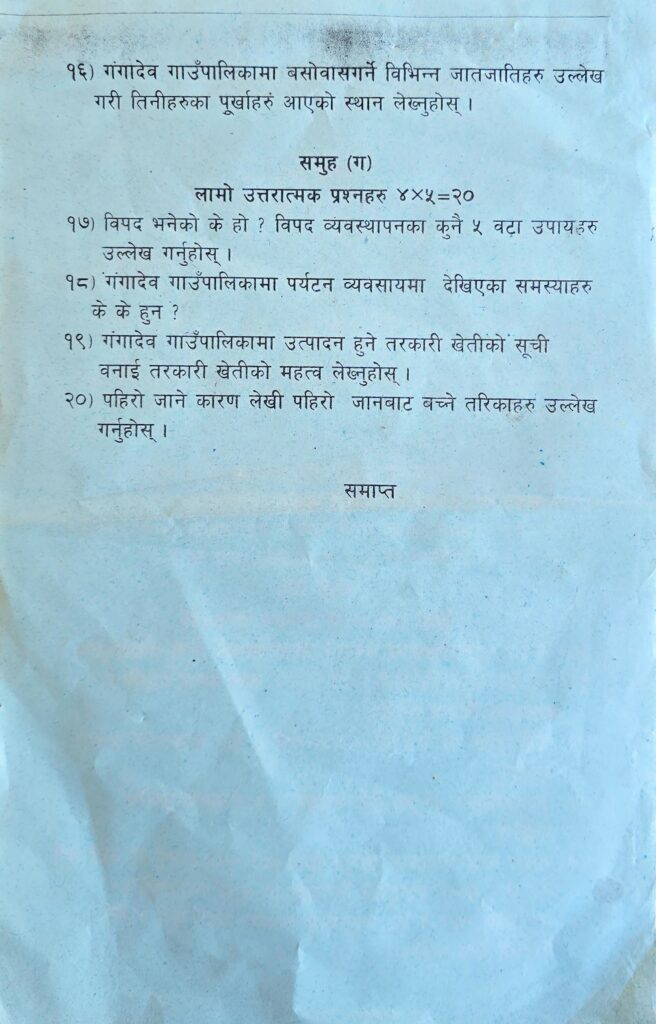 १६) गंगादेव गाउँपालिकामा बसोवासगर्ने विभिन्न जातजातिहरु उल्लेख
गरी तिनीहरुका पूर्खाहरु आएको स्थान लेख्नुहोस् ।
समुह (ग)
लामो उत्तरात्मक प्रश्नहरु ४×५=२०
१७) विपद भनेको के हो ? विपद व्यवस्थापनका कुनै ५ वटा उपायहरु
उल्लेख गर्नुहोस् ।
१८) गंगादेव गाउँपालिकामा पर्यटन व्यवसायमा देखिएका समस्याहरु
के के हुन ?
१९) गंगादेव गाउँपालिकामा उत्पादन हुने तरकारी खेतीको सूची
वनाई तरकारी खेतीको महत्व लेख्नुहोस् ।
२०) पहिरो जाने कारण लेखी पहिरो जानबाट बच्ने तरिकाहरु उल्लेख
गर्नुहोस् ।
समाप्त